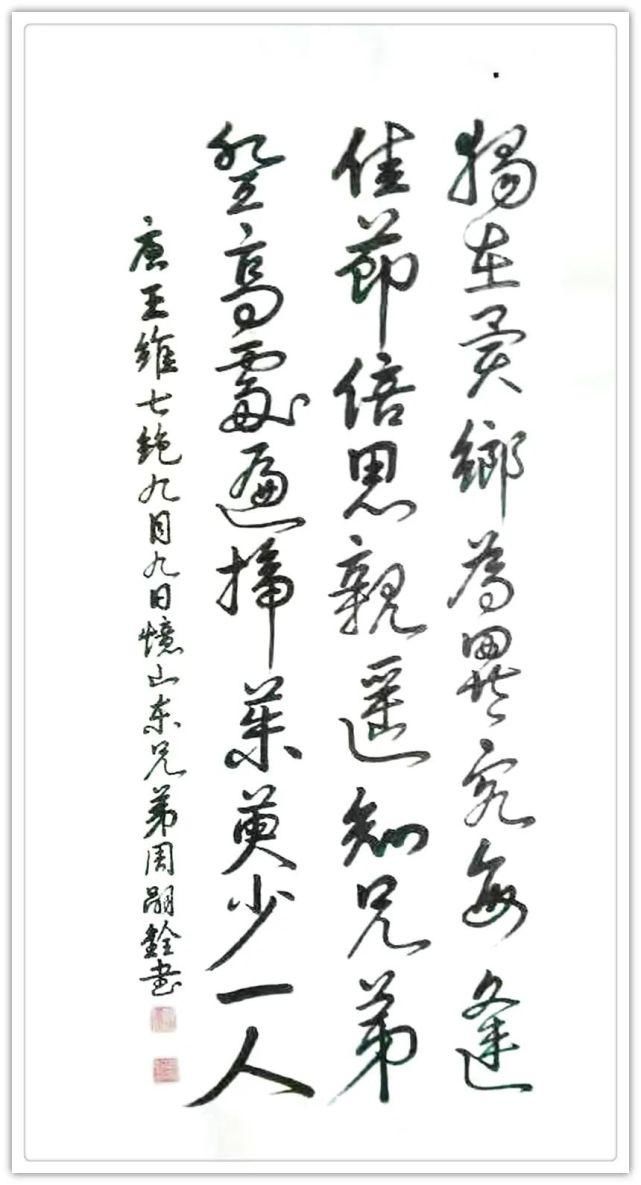 獨在異鄉為異客每逢
佳節倍思親遥知兄弟
登高處遍插茱萸少一人
唐王維七絶九月九日憶山东兄弟周嗣銓书